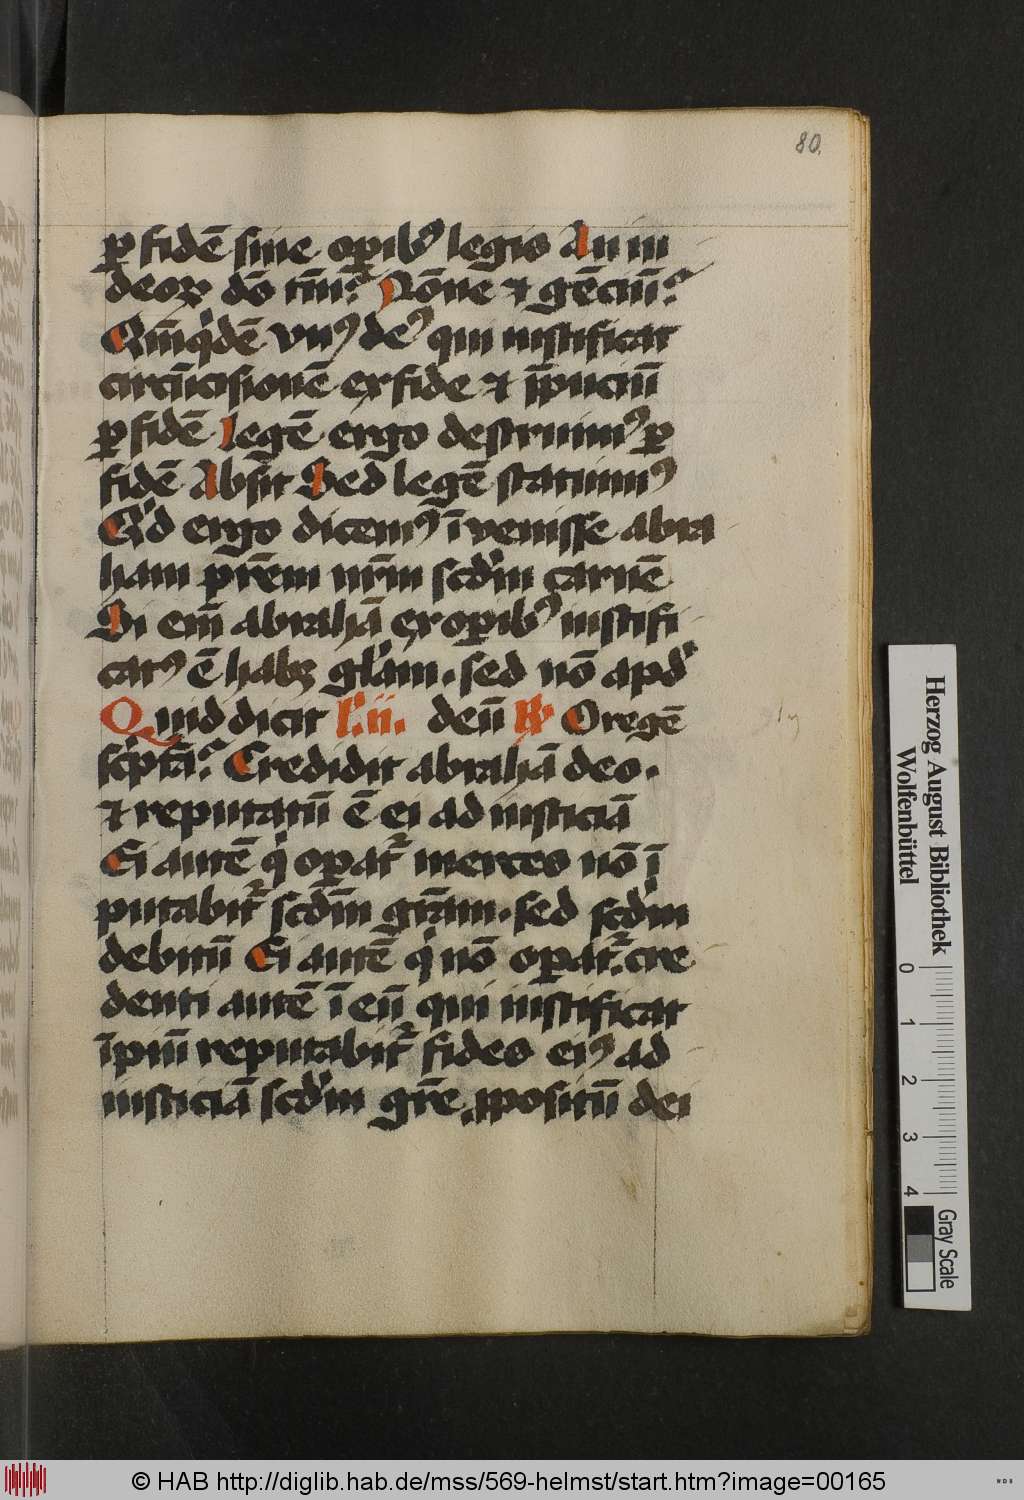 80.
ꝑ fidē sine oꝑibꝰ legis An iu
deoꝝ dō tm̄? Nōne ⁊ gēciū?
Qm̄qͥdē vnꝰ deꝰ qui iustificat
circūcisionē ex fide ⁊ p̄puciū
ꝑ fidē Legē ergo destruimꝰ ꝑ
fidē Absit Sed legē statuimꝰ
Qͥd ergo dicemꝰ īvenisse abra
ham pr̄em nr̄m scdͥm carnē
Si em̄ abrahā ex oꝑibꝰ iustifi
catꝰ ē habꝫ glͥam. sed nō apdͥ
deū Oregē
Quid dicit
scͥptā? Credidit abrahā deo.
⁊ reputatū ē ei ad iusticiā
Ei autē qͥ oꝑatᷣ merces nō ī
putabitᷣ scdͥm grām. sed scdͥm
debitū Ei autē qͥ nō oꝑatᷣ. cre
denti autē ī eū qui iustificat
īpiū reputabitᷣ fides eiꝰ ad
iusticiā scdͥm grē. ꝓpositū dei
Herzog August Bibliothek
Wolfenbüttel
0 1 2 3 4
Gray Scale
© HAB http://diglib.hab.de/mss/569-helmst/start.htm?image=00165